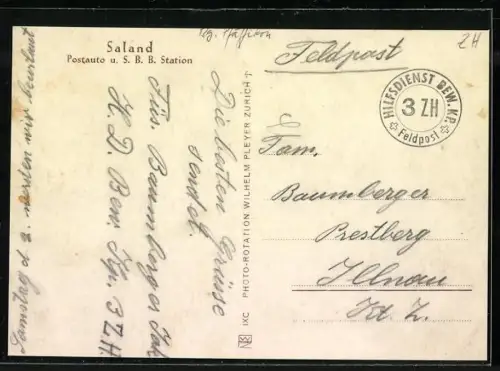 Bz. Pfäffikon
ZH
Saland
Postauto u. S. B. B. Station
Feldpost
HILFSDIENST BEW. KP.
3 ZH
Feldpost
Fam.
Baumberger
Prestberg
Illnau
Kt. Z.
Die besten Grüsse
sendet.
Füs. Baumberger Jak
H. D. Bew. Kp. 3 ZH
Samstag d. 2. werden wir beurlaubt
IXC PHOTO-ROTATION WILHELM PLEYER ZURICH 7